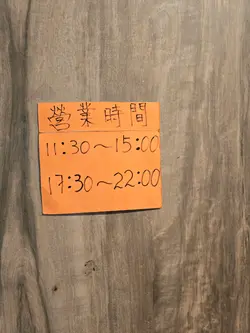 營業時間
11:30~15:00
17:30~22:00